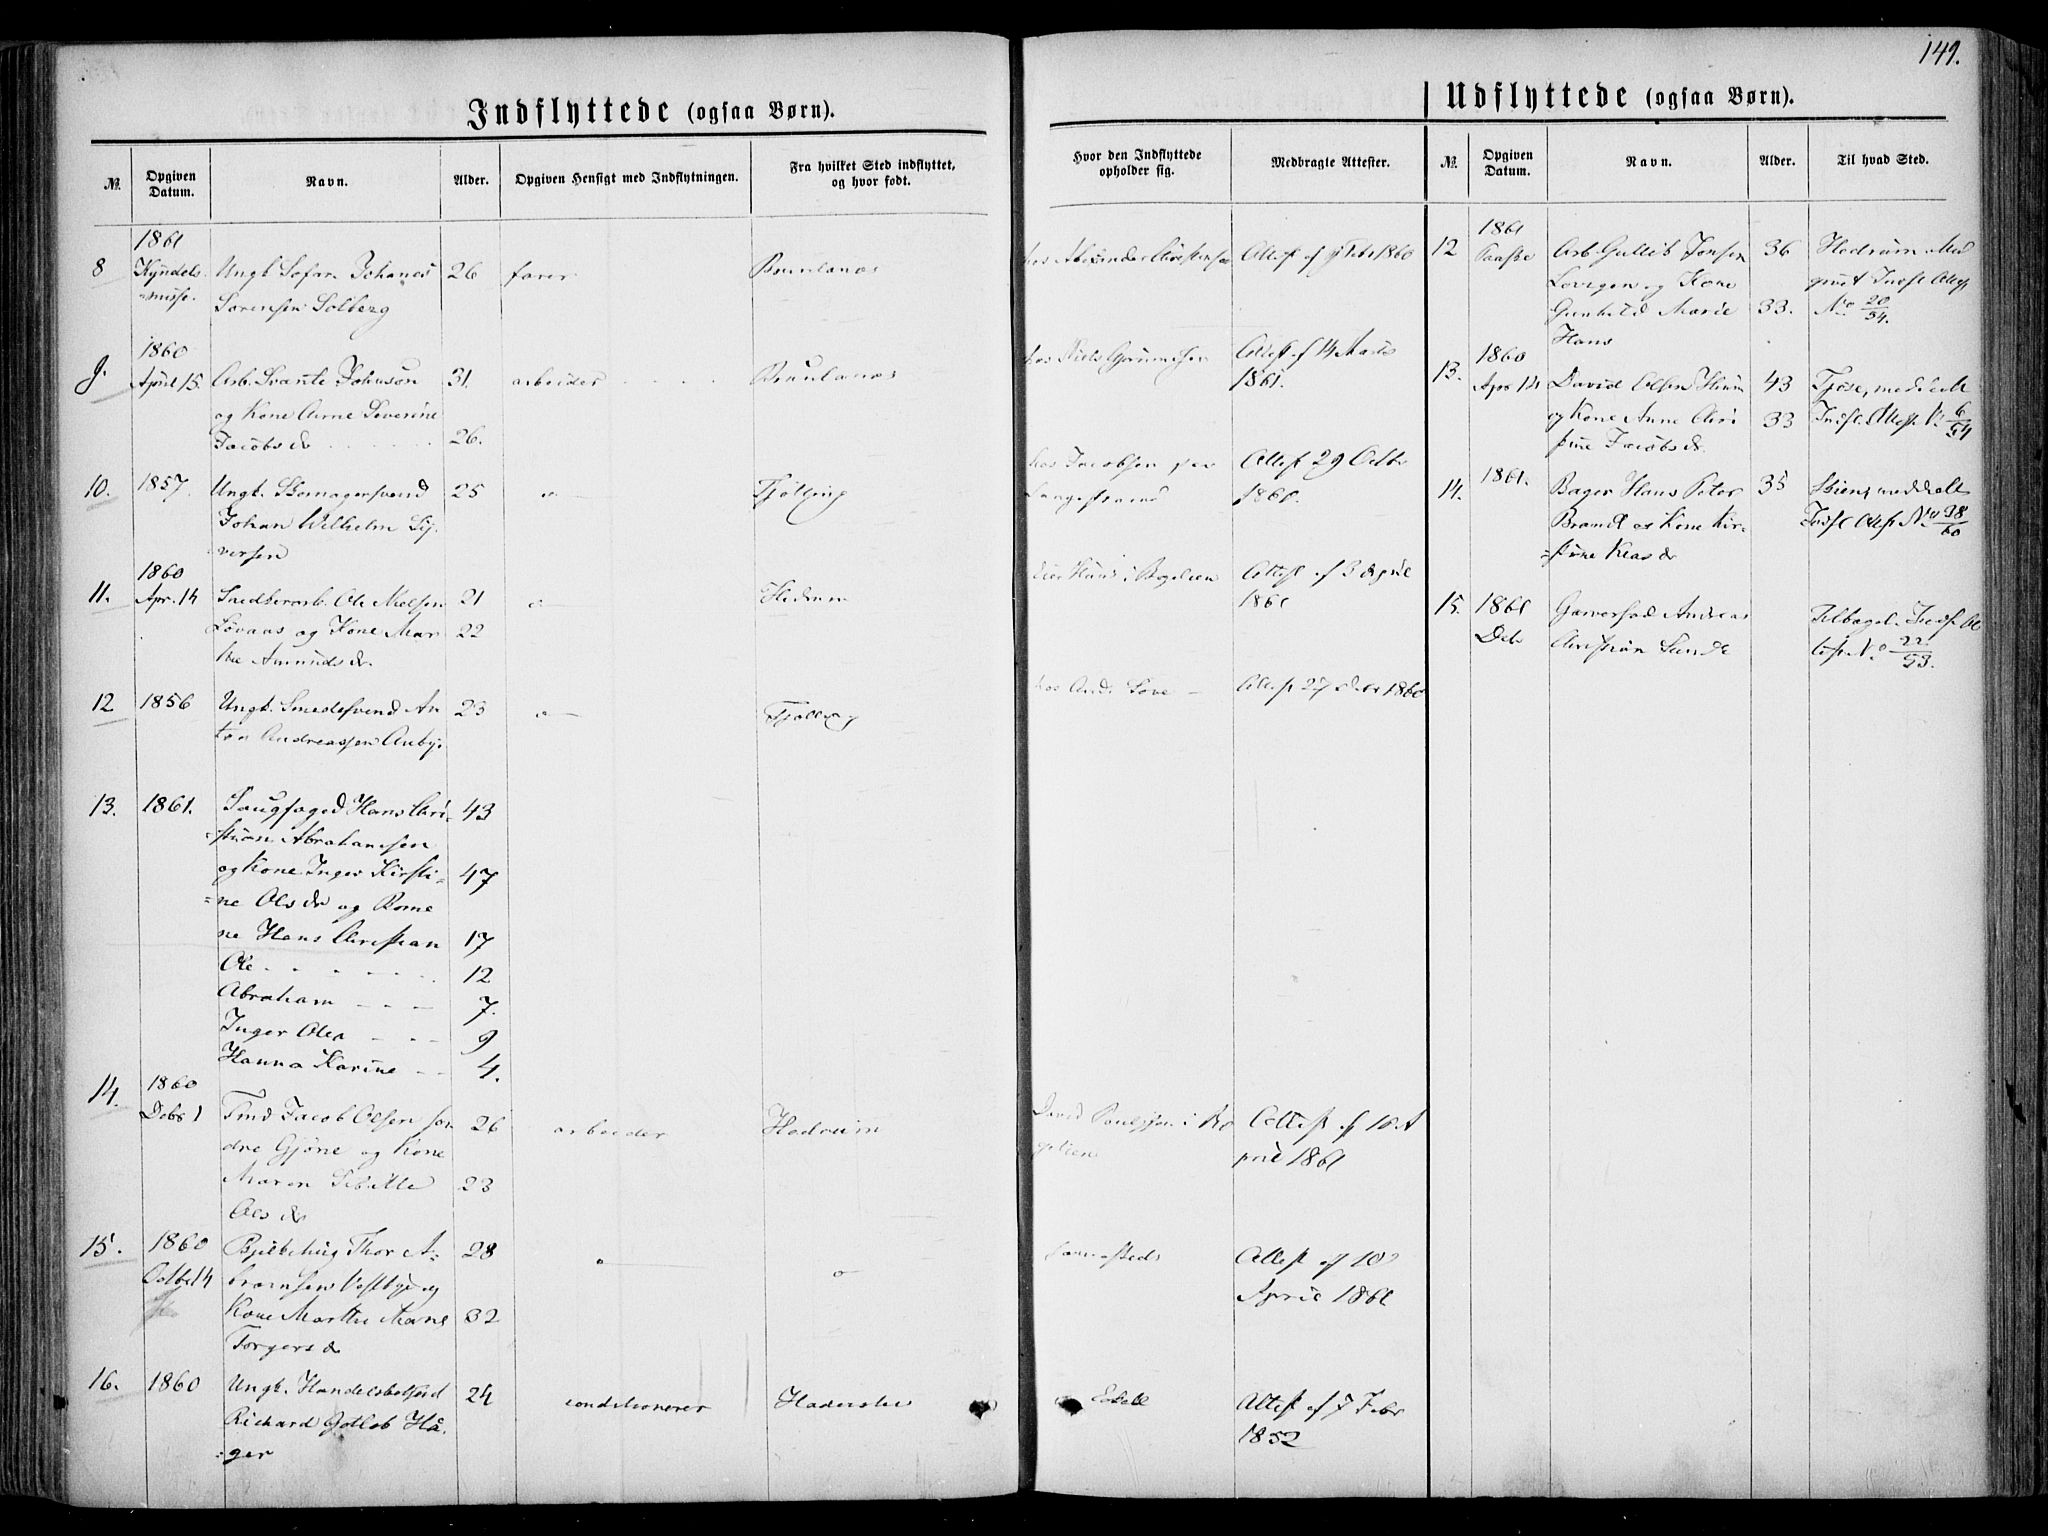 149.
Indflyttede (ogsaa Børn).
№.
Opgiven Datum.
Navn.
Alder.
Opgiven Hensigt med Indflytningen.
Fra hvilket Sted indflyttet, og hvor født.
Hvor den Indflyttede opholder sig.
Medbragte Attester.
8
1861
Kyndels-
=misse.
Ungk. Sofar. Johanes
Sørensen Solberg
26
farer
Brunlanæs
hos Alexander Christensen
Attest af 9 Febr 1860
9.
1860
April 15.
Arb. Svante Johnson
og Kone Anne Severine
Jacobsdr
31.
26.
arbeider
Brunlanæs
hos Niels
Attest af 14 Marts
1861.
10.
1857.
Ungk. Skomagersvend
Johan Wilhelm Sy-
versen
25
Tjølling
hos Jacobsen
Langestrand
Attest 29 Octbr
1860.
11.
1860
Apr. 14
Snedkerarb. Ole Nielsen
Løvaas og Kone Mar
the Amundsdr.
21
22
Hedrum
Attest af 3 April
1861
12
1856
Ungk. Smedesvend An
ton Andreassen Auby.
23
Tjølling
hos And. Love
Attest 27 1860
13.
1861.
Saugfoged Hans Chri-
=stian Abrahamsen
og Kone Inger Kirsti-
=ne Olsdr og Børne
ne Hans Christian
Ole
Abraham
Inger Olea
Hanna Karine
43
47
17
12
7.
9
4.
14.
1860
Debr 1
Tmd Jacob Olsen søn
dre Gjøne og Kone
Maren Sibille
Olsdr
26
23
arbeider
Hedrum
David Paulssen i Bø
gelien
Attest af 10 A
pril 1861
15.
1860
Octbr 14
Thor A-
bramsen Vestbye og
Kone Marthe Marie
Torgersdr
28
32
o
sammesteds
Attest af 10
April 1861
16.
1860
Ungk. Handelsbetjend
Richard Gotlob Hä-
=ger
24
conditionerer
Haderslev
Attest af 7 Febr
1852
Udflyttede (ogsaa Børn).
№.
Opgiven Datum.
Navn.
Alder.
Til hvad Sted.
12
1861
Paaske
Arb. Gulleb Jonsen
Lovegen og Kone
Gunhild Marie
Hans
36
33.
Hedrum. Med
givet Indfl. Attest
No 20/54.
13.
1860
Apr 14
David Olsen
og Kone Anne Chri
stine Jacobsdr.
43
33
Tjøse, meddelt
Indfl. Attest No 6/54
14.
1861.
Bager Hans Peter
Brandt og Kone Kir-
=stine Klasdr
35
Skien, meddelt
Indfl Attest No 28/60
15.
1860
Debr
Garversvd Andreas
Christian Sunde
Tilbagel. Indfl. At
test No 22/53.